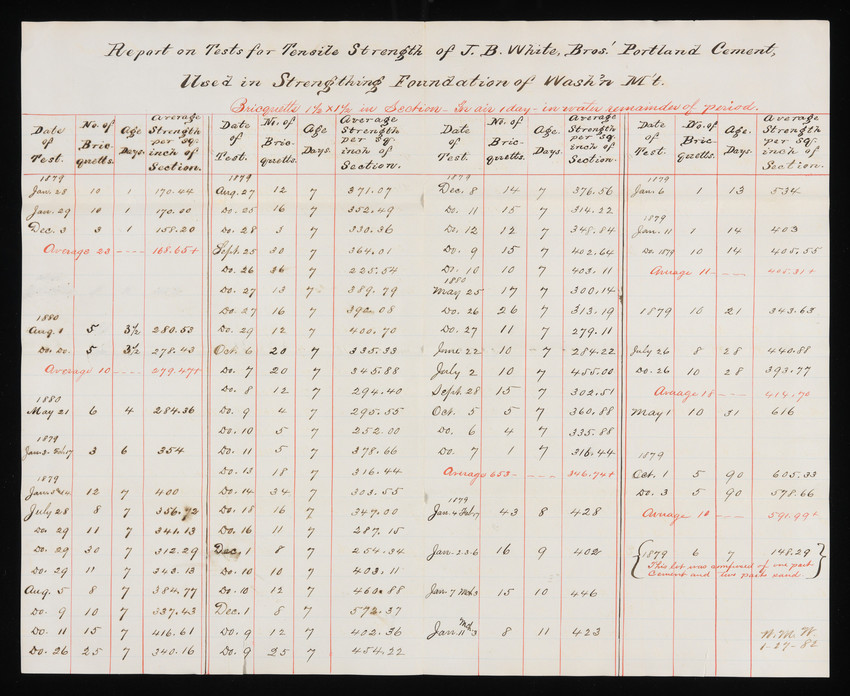 Report on Tests for Tensile Strength of J. B. White, Bros.' Portland Cement,
Used in Strengthing Foundation of Wash'n M't.
Bricquette 1½ x 1½ in Section - In air 1 day - in water remainder of period.
Date of Test. No. of Bric-quetts. Age Days. Average Strength per sq. inch of Section.
1879
Jan. 28 10 1 170.44
Jan. 29 10 1 170.00
Dec. 3 3 1 158.20
Average 23 - - - - 168.65+
1880
Aug. 1 5 3½ 280.53
Do. Do. 5 3½ 278.43
Average 10 - - - - 279.47+
1880
May 21 6 4 284.36
1879
Jan. 3. Feb. 17 3 6 354
1879
12 7 400
July 28 8 7 356.72
Do. 29 11 7 341.13
Do. 29 30 7 312.29
Do. 29 11 7 343.13
Aug. 5 8 7 384.77
Do. 9 10 7 337.43
Do. 11 15 7 416.61
Do. 26 25 7 340.16
Date of Test. No. of Bric-quetts. Age Days. Average Strength per sq. inch of Section.
1879
Aug. 27 12 7 371.07
Do. 25 16 7 352.49
Do. 28 3 7 330.36
Sept. 25 30 7 364.01
Do. 26 36 7 225.54
Do. 27 13 7 389.79
Do. 27 16 7 392.08
Do. 29 12 7 400.70
Oct. 6 20 7 335.33
Do. 7 20 7 345.88
Do. 8 12 7 294.40
Do. 9 4 7 295.55
Do. 10 5 7 252.00
Do. 11 5 7 378.66
Do. 13 18 7 316.44
Do. 14 34 7 303.55
Do. 18 16 7 347.00
Do. 16 11 7 287.15
Dec. 1 8 7 254.34
Do. 10 10 7 403.11
Do. 10 12 7 460.88
Dec. 1 8 7 572.37
Do. 9 12 7 402.36
Do. 9 25 7 454.22
Date of Test. No. of Bric-quetts. Age. Days. Average Strength per sq. inch of Section.
1879
Dec. 8 14 7 376.56
Do. 11 15 7 314.22
Do. 12 12 7 348.84
Do. 9 15 7 402.64
Do. 10 10 7 403.11
1880
May 25 17 7 300.14
Do. 26 26 7 313.19
Do. 27 11 7 279.11
June 22 10 7 284.22
July 2 10 7 455.00
Sept. 28 15 7 302.51
Oct. 5 5 7 360.88
Do. 6 4 7 335.88
Do. 7 1 7 316.44
Average 653 - - - - 346.74+
1879
Jan. 4 Feb. 17 43 8 428
Jan. 2.3.6 16 9 402
Jan. 7 Mch 3 15 10 446
Jan. 11 Mch 3 8 11 423
Date of Test. No. of Bric-quetts. Age. Days. Average Strength per sq. inch of Section.
1879
Jan. 6 1 13 534
1879
Jan. 11 1 14 403
Do. 1879 10 14 405.55
Average 11 - - - - 405.31+
1879 10 21 343.63
July 26 8 28 440.88
Do. 26 10 28 393.77
Average 18 - - - 414.70
May 1 10 31 616
1879
Oct. 1 5 90 605.33
Do. 3 5 90 578.66
Average 10 - - - - 591.99+
1879 6 7 148.29
This lot was composed of one part
Cement and two parts sand
W. M. W.
1-27-82